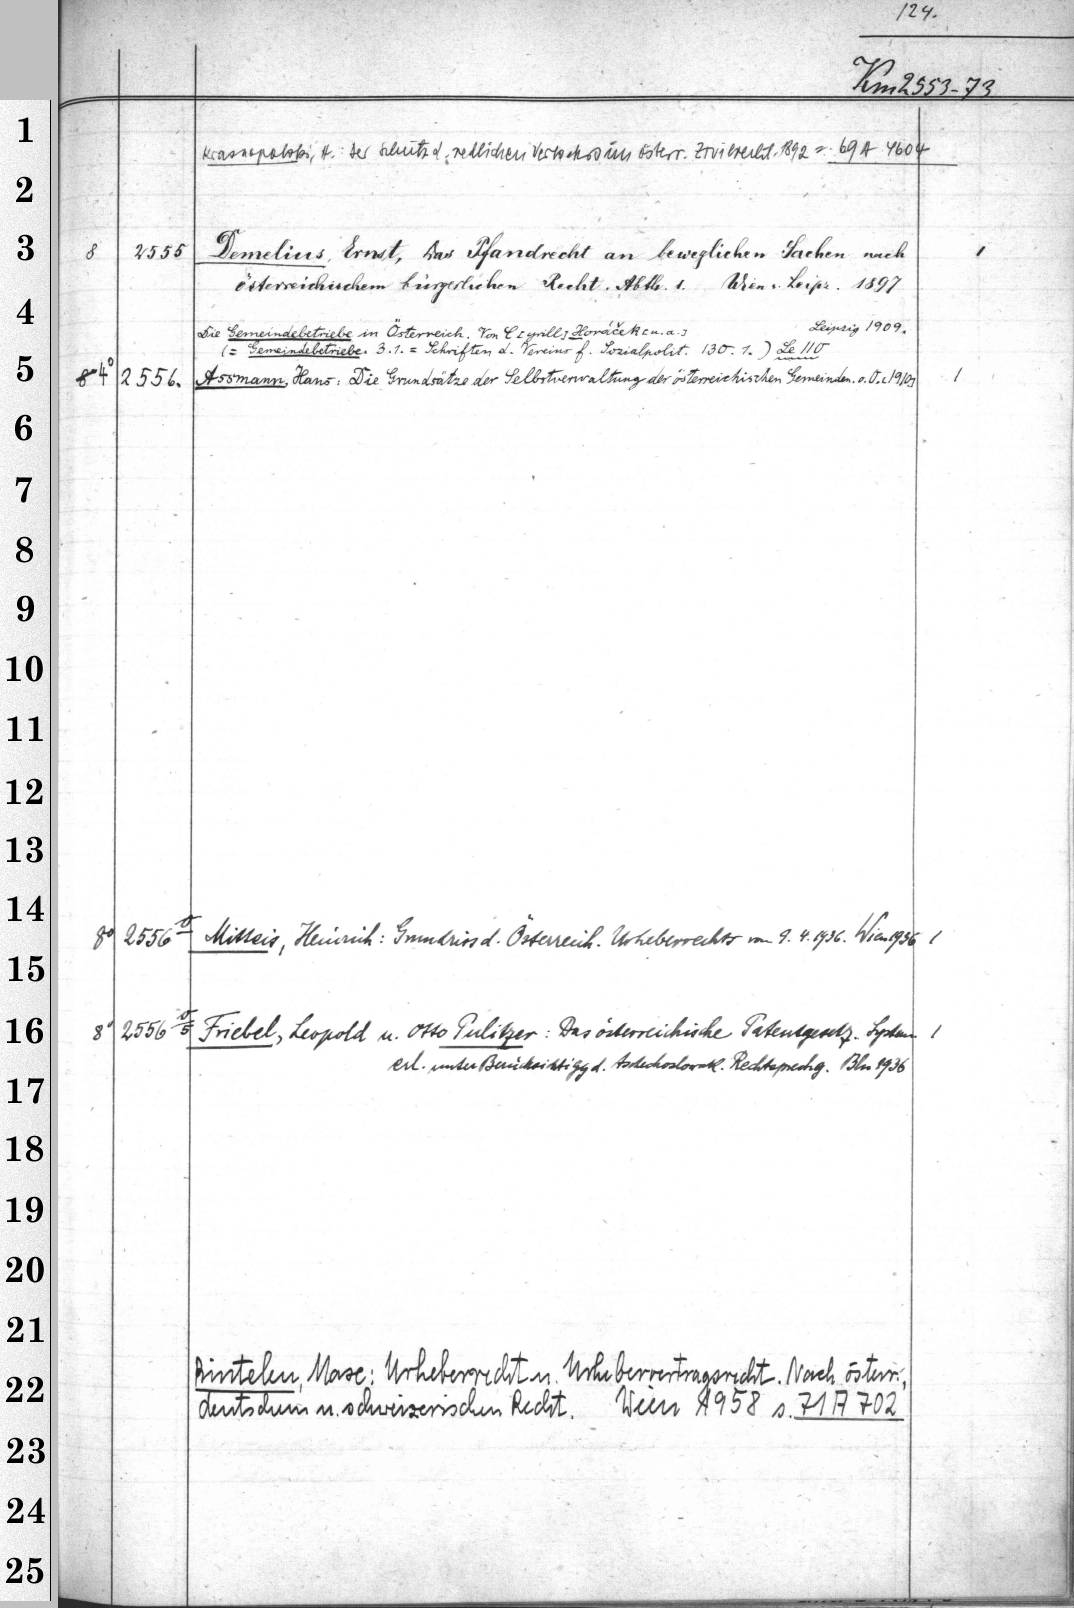 124.
Km 2553-73
1
Krasnopolski, H.: Der Schutz d. redlichen Verkehrs im österr. Zivilrecht. 1892 = 69 A 4604
2
3 8 2555 Demelius, Ernst, Das Pfandrecht an beweglichen Sachen nach 1
österreichischem bürgerlichen Recht. Abth. 1. Wien u. Leipz. 1897
4 Die Gemeindebetriebe in Österreich. Von C[yrill] Horáček [u. a.] Leipzig 1909.
(= Gemeindebetriebe. 3.1. = Schriften d. Vereins f. Sozialpolit. 130. 1.) Le 110
5 8° 4° 2556. Assmann, Hans: Die Grundsätze der Selbstverwaltung der österreichischen Gemeinden. o. O. [1910] 1
6
7
8
9
10
11
12
13
14
8° 2556 Mitteis, Heinrich: Grundriss d. Österreich. Urheberrechts vom 9. 4. 1936. Wien 1936 1
15
16 8° 2556 Friebel, Leopold u. Otto Pulitzer: Das österreichische Patentgesetz. System. 1
erl. unter Berücksichtigg d. tschechoslowak. Rechtsprechg. Bln 1936
17
18
19
20
21
Rintelen, Max: Urheberrecht u. Urhebervertragsrecht. Nach österr.,
22 deutschem u. schweizerischen Recht. Wien 1958 s. 71 A 702
23
24
25